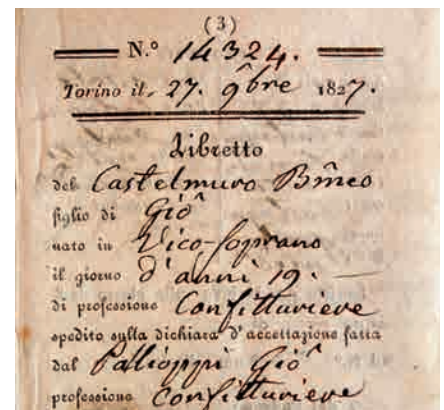 (3)
N.º 14324.
Torino il 27. 9bre 1827.
Libretto
del Castelmuro Bmeo
figlio di Gio
nato in Vico-soprano
il giorno d'anni 19.
di professione Confitturiere
spedito sulla dichiara d'accettazione fatta
dal Palioppi Gio
professione Confitturiere